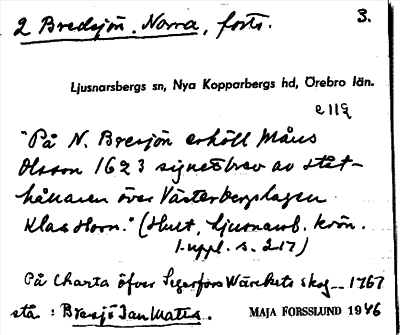 2 Bredsjön, Norra, forts. 3.
Ljusnarsbergs sn, Nya Kopparbergs hd, Örebro län.
e 11g
"På N. Bresjön erhöll Måns
Olsson 1623 signetsbrev av ståt-
hållaren över Västerbergslagen
Klas Horn." (Hult, Ljusnarsb. krön.
1. uppl. s. 217)
På Charta öfver Segerfors Wärckets skog 1767
stå : Bresjö Jan Matts. MAJA FORSSLUND 1946